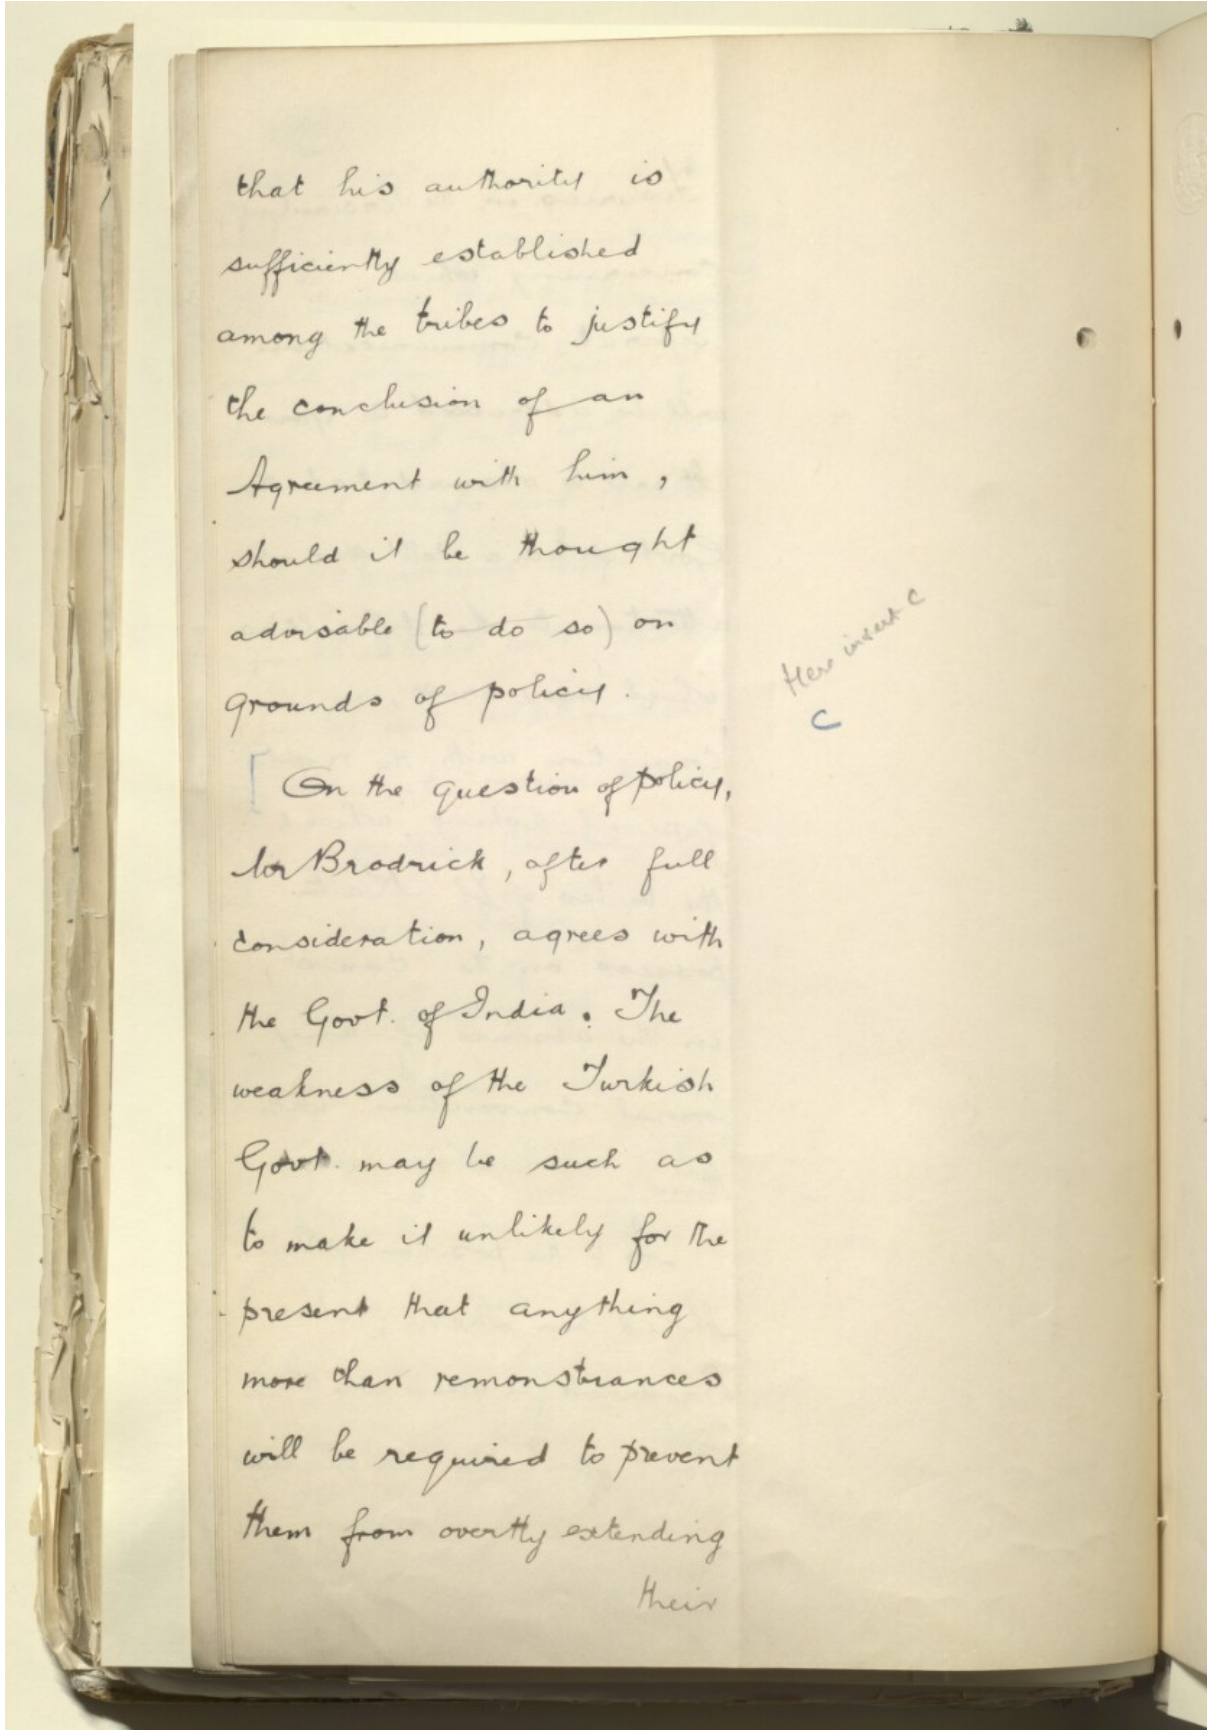 that his authority is
sufficiently established
among the tribes to justify
the conclusion of an
Agreement with him,
should it be thought
advisable (to do so) on
grounds of policy.
Here insert C
C
[ On the question of policy,
Mr Brodrick, after full
consideration, agrees with
the Govt. of India. The
weakness of the Turkish
Govt. may be such as
to make it unlikely for the
present that anything
more than remonstrances
will be required to prevent
them from overtly extending
their